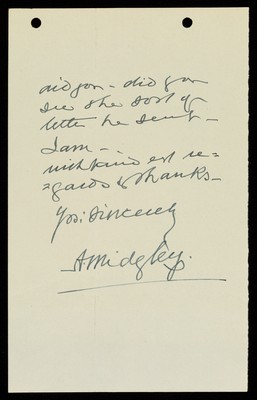 aid you - did you
see the sort of
letter he sent -
I am -
with kindest re=
=gards & thanks -
Yrs: Sincerely
A Midgley.